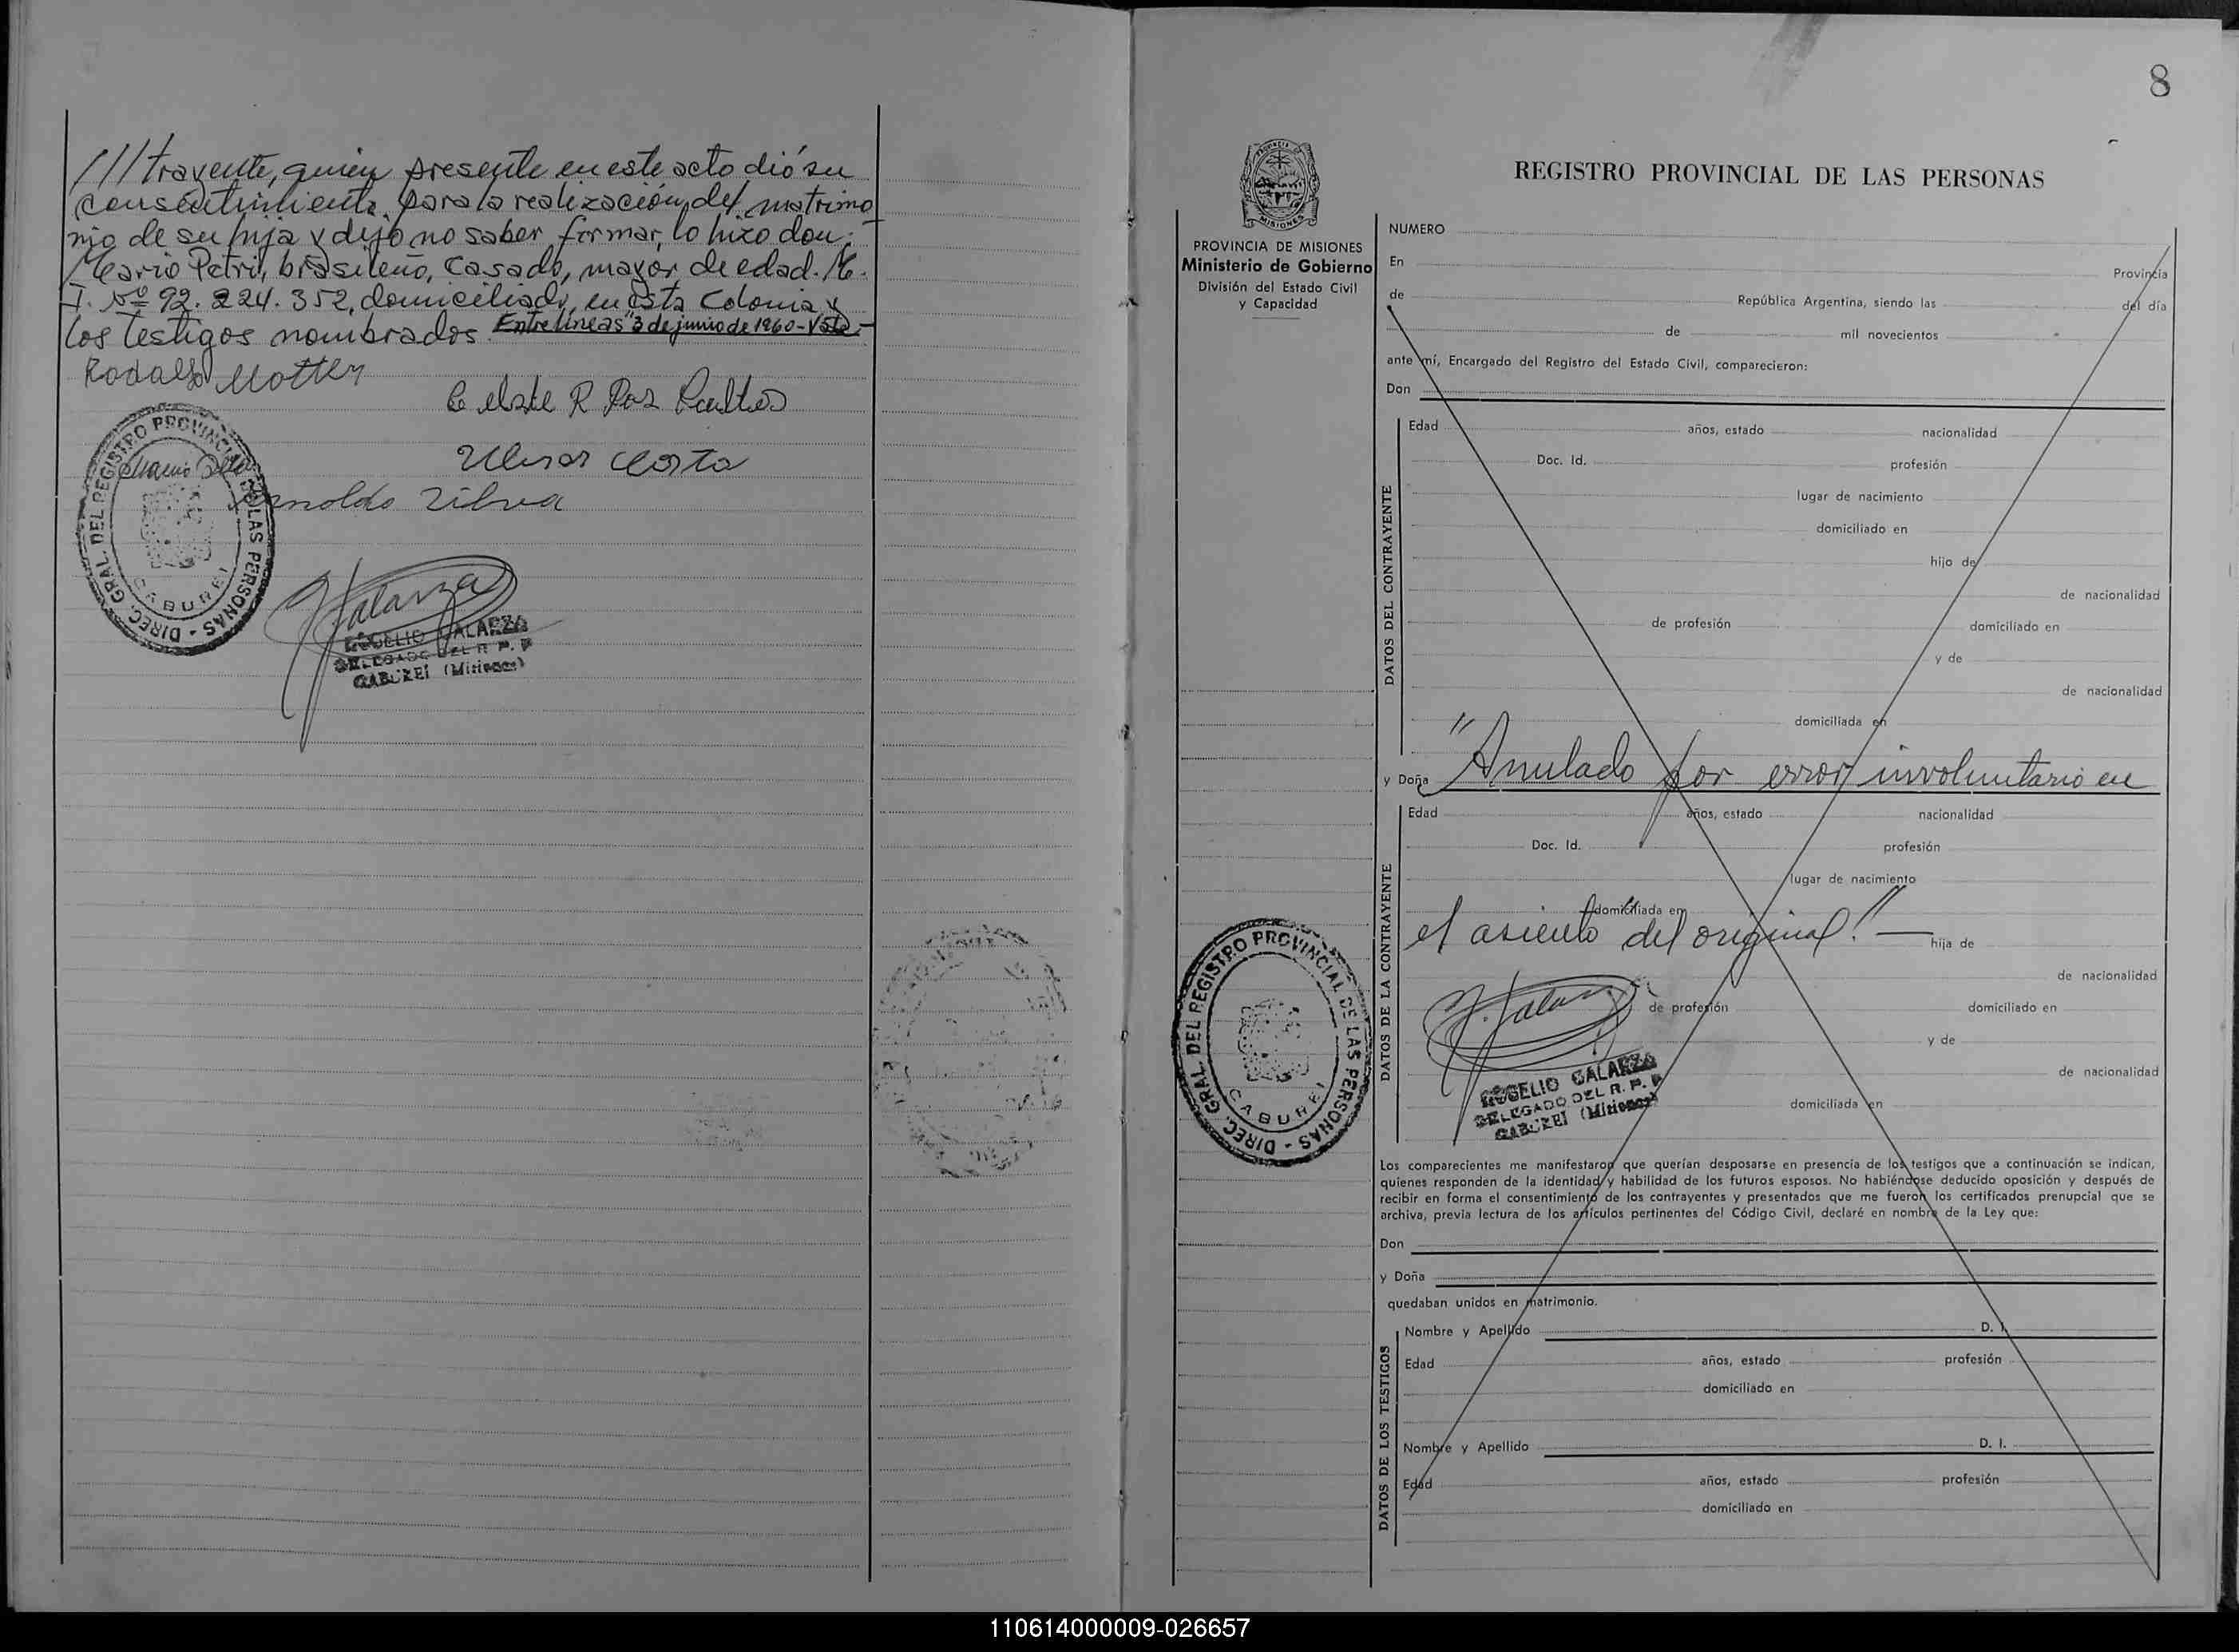 ///trayente, quien presente en este acto dió su
consentimiento para la realización del matrimo-
nio de su hija y dijo no saber firmar, lo hizo don:
Mario Petri, brasileño, casado, mayor de edad. M.
I. Nº 92.224.352, domiciliado en esta Colonia y
los testigos nombrados. Entre líneas "3 de junio de 1960 - Vale.-
Rodolfo Motter
Celste R
Mario
Arnoldo Silva
DIREC. GRAL. DEL REGISTRO PROVINCIAL DE LAS PERSONAS -
CABUREI
Galarza
ROGELIO GALARZA
DELEGADO DEL R. P. P
CABUREI (Misiones)
8
REGISTRO PROVINCIAL DE LAS PERSONAS
MISIONES
PROVINCIA DE MISIONES
Ministerio de Gobierno
División del Estado Civil
y Capacidad
NUMERO
En Provincia
de República Argentina, siendo las del día
de mil novecientos
ante mí, Encargado del Registro del Estado Civil, comparecieron:
Don
DATOS DEL CONTRAYENTE
Edad años, estado nacionalidad
Doc. Id. profesión
lugar de nacimiento
domiciliado en
hijo de
de nacionalidad
de profesión domiciliado en
y de
de nacionalidad
domiciliada en
y Doña "Anulado por error involuntario en
DATOS DE LA CONTRAYENTE
Edad años, estado nacionalidad
Doc. Id. profesión
lugar de nacimiento
domiciliada en
el asiento del original."—
hija de
de nacionalidad
de profesión domiciliado en
y de
de nacionalidad
domiciliada en
ROGELIO GALARZA
DELEGADO DEL R. P. P
CABUREI (Misiones)
DIREC. GRAL. DEL REGISTRO PROVINCIAL DE LAS PERSONAS -
CABUREI
Los comparecientes me manifestaron que querían desposarse en presencia de los testigos que a continuación se indican,
quienes responden de la identidad y habilidad de los futuros esposos. No habiéndose deducido oposición y después de
recibir en forma el consentimiento de los contrayentes y presentados que me fueron los certificados prenupcial que se
archiva, previa lectura de los artículos pertinentes del Código Civil, declaré en nombre de la Ley que:
Don
y Doña
quedaban unidos en matrimonio.
DATOS DE LOS TESTIGOS
Nombre y Apellido D. I.
Edad años, estado profesión
domiciliado en
Nombre y Apellido D. I.
Edad años, estado profesión
domiciliado en
110614000009-026657